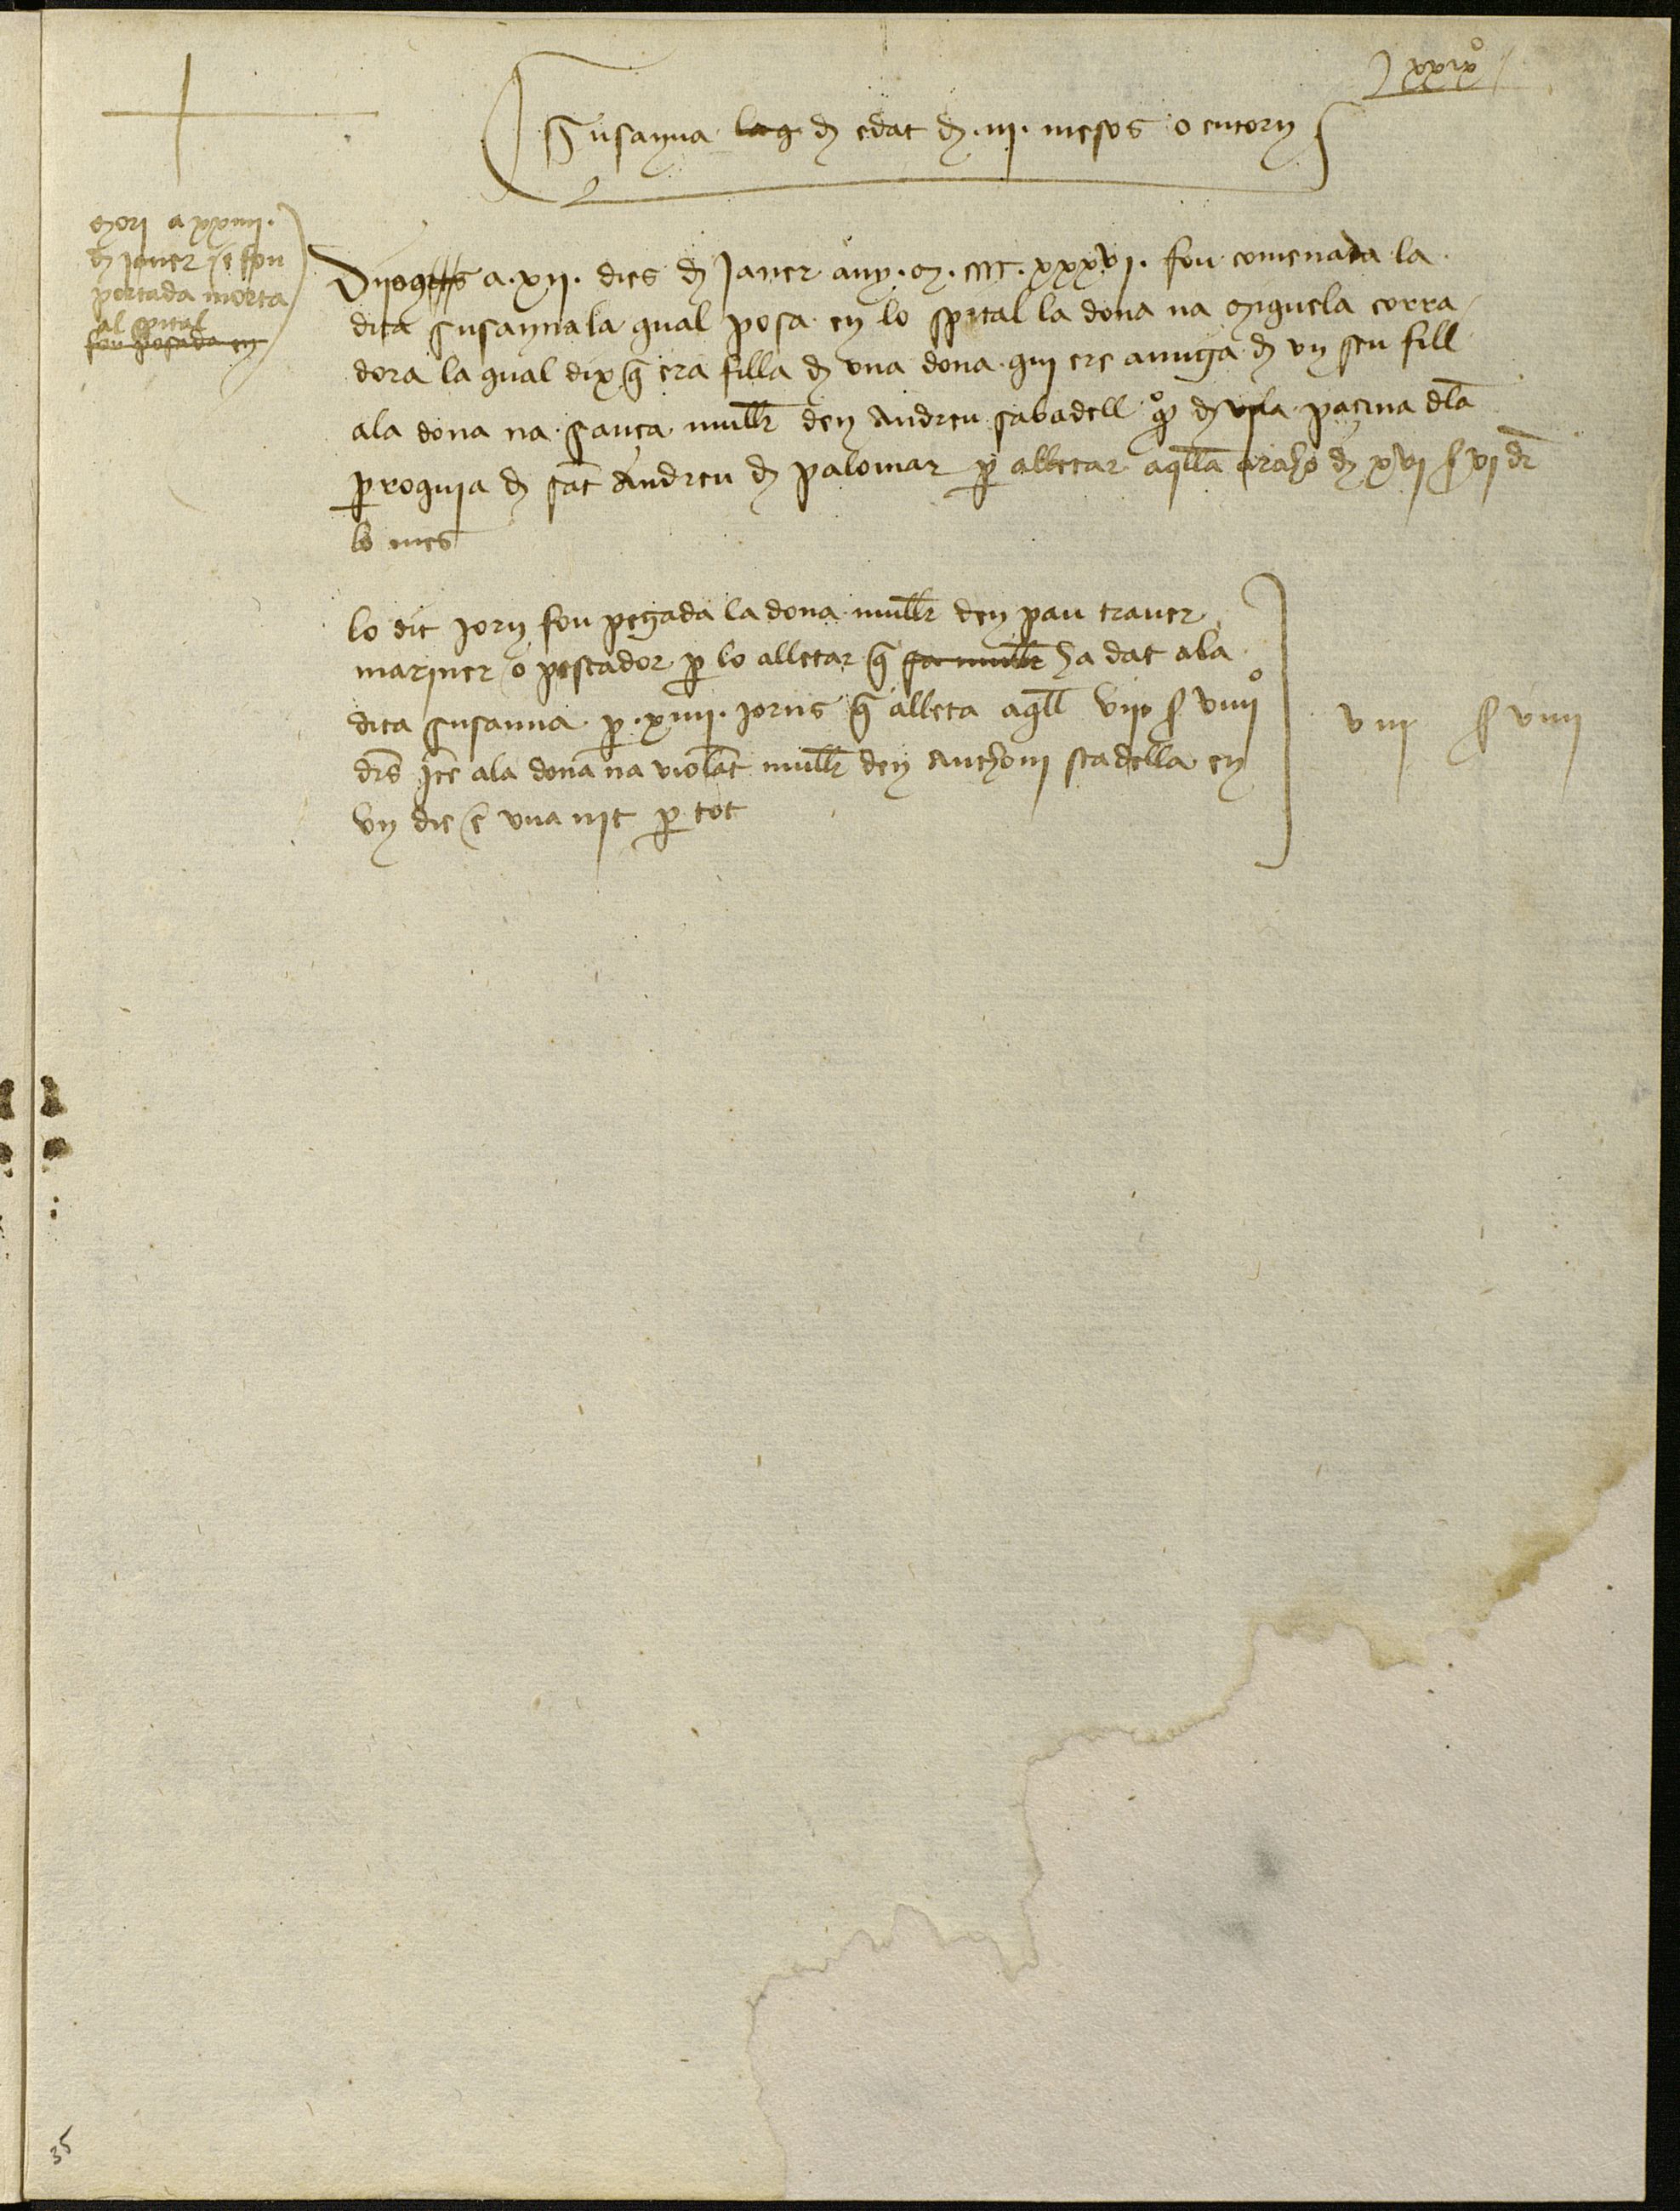 xxixº
Susanna lag d edat d .iii. mesos o entorn
mori a xxiiii.
d janer e fou
portada morta
al spital
fou posada en
a .xii. dies d janer any .M. cccc. xxxvi. fou comenada la
dita susanna la qual posa en lo spital la dona na miguela corra
dora la qual dix q̃ era filla d una dona qui ere amiga d un seu fill
ala dona na sança mullr den Andreu sabadell d dla
perroquia d sãt Andreu d palomar p alletar aqllã araho d xvi s vi dr
lo mes
lo dit jorn fou pegada la dona mullr den pau traver
mariner o pescador p lo alletar q̃ sa mullr ha dat ala
dita susanna p .xiiii. jorns q̃ alleta aqll viii s viiiiº
drs Itẽ ala dona na violãt mullr den Anthoni stadella en
un die e una nit p tot
viii s viiii
35